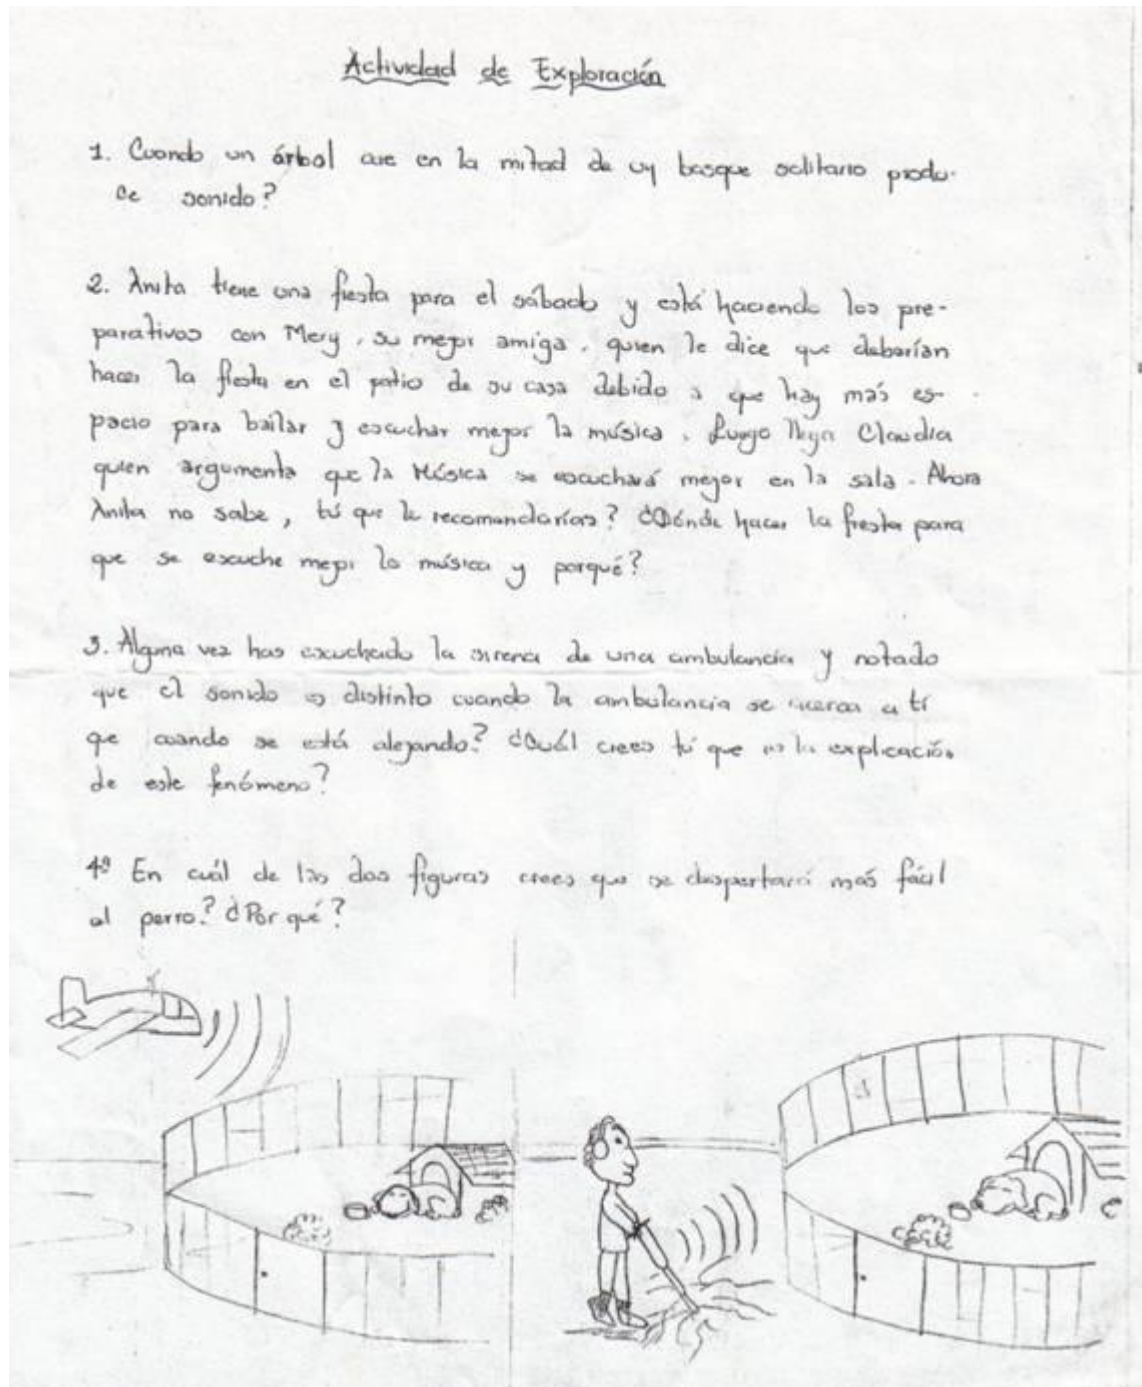 Actividad de Exploración
1. Cuando un árbol cae en la mitad de un bosque solitario produ-
ce sonido?
2. Anita tiene una fiesta para el sábado y está haciendo los pre-
parativos con Mery, su mejor amiga, quien le dice que deberían
hacer la fiesta en el patio de su casa debido a que hay más es-
pacio para bailar y escuchar mejor la música. Luego llega Claudia
quien argumenta que la Música se escuchará mejor en la sala. Ahora
Anita no sabe, tú que le recomendarías? ¿Dónde hacer la fiesta para
que se escuche mejor la música y porqué?
3. Alguna vez has escuchado la sirena de una ambulancia y notado
que el sonido es distinto cuando la ambulancia se acerca a tí
que cuando se está alejando? ¿Cuál crees tú que es la explicación
de este fenómeno?
4º En cuál de las dos figuras crees que se despertará más fácil
el perro? ¿Por qué?